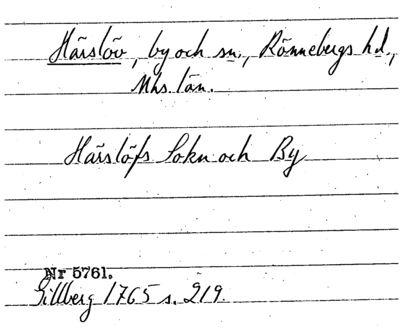 Härslöv, by och sn., Rönnebergs hd.,
Mhs. län.
Härslöfs Sokn och By
Nr 5761.
Gillberg 1765 s. 219.